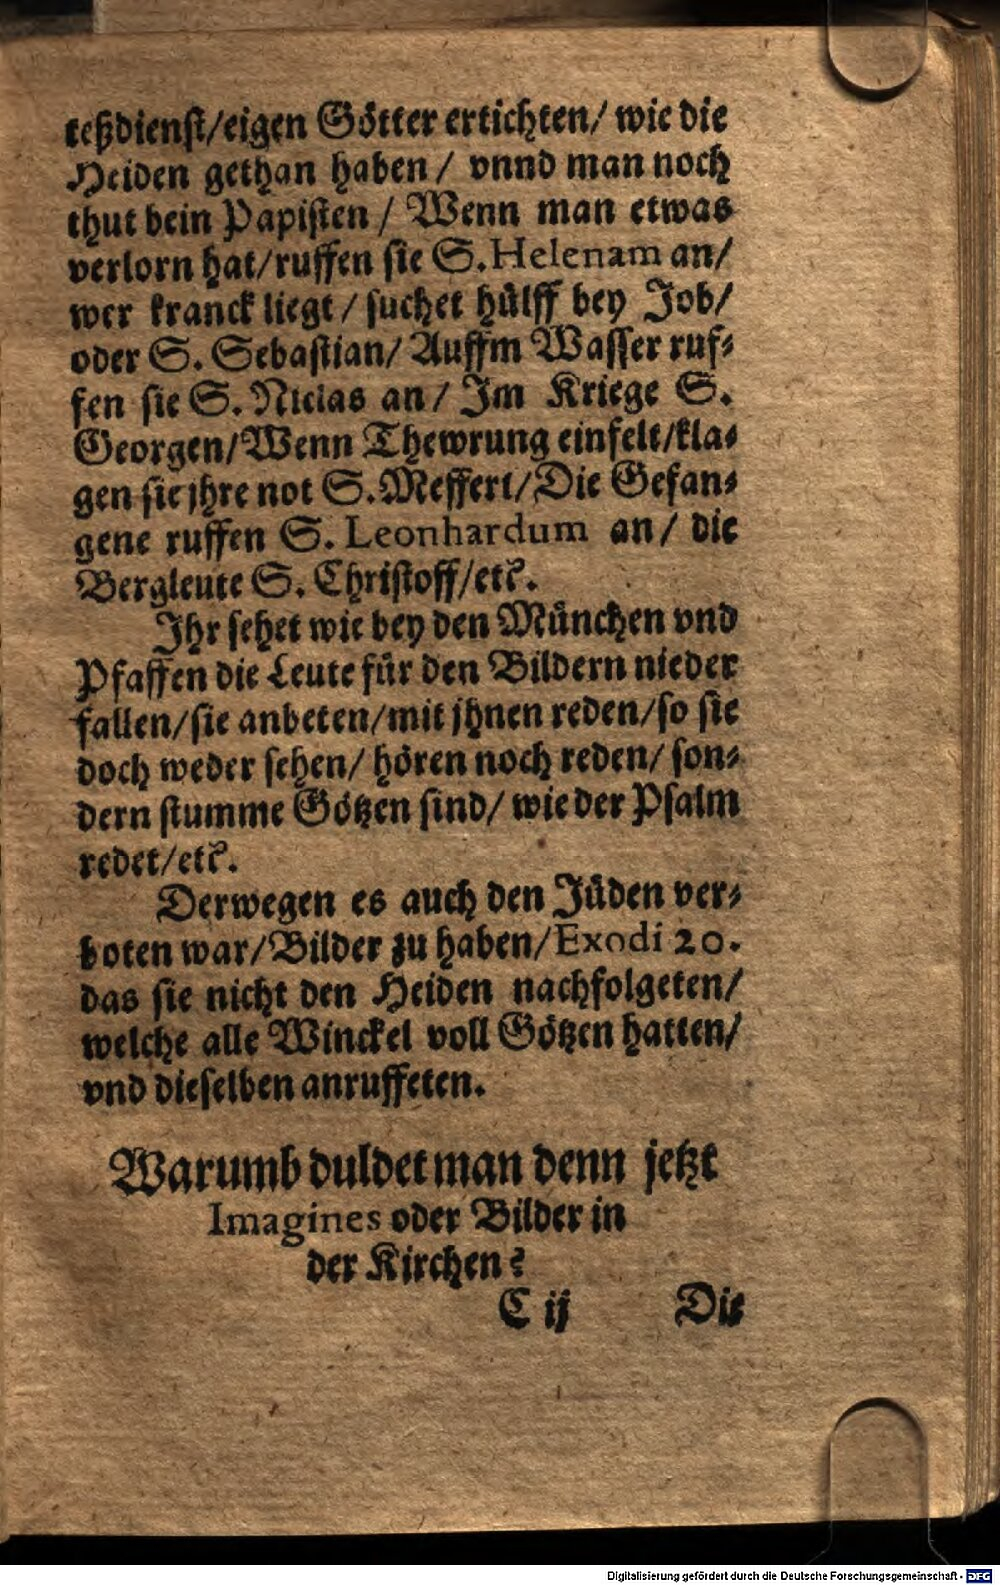 teßdienst/eigen Götter ertichten/ wie die
Heiden gethan haben/ vnnd man noch
thut bein Papisten/ Wenn man etwas
verlorn hat/ruffen sie S. Helenam an/
wer kranck liegt/ suchet hülff bey Job/
oder S. Sebastian/ Auffm Wasser ruf⸗
fen sie S. Niclas an/ Im Kriege S.
Georgen/Wenn Thewrung einfelt/kla⸗
gen sie jhre not S. Meffert/Die Gefan⸗
gene ruffen S. Leonhardum an/ die
Bergleute S. Christoff/etc.
Ihr sehet wie bey den München vnd
Pfaffen die Leute für den Bildern nieder
fallen/sie anbeten/mit jhnen reden/so sie
doch weder sehen/ hören noch reden/ son⸗
dern stumme Götzen sind/ wie der Psalm
redet/etc.
Derwegen es auch den Jüden ver⸗
boten war/Bilder zu haben/Exodi 20.
das sie nicht den Heiden nachfolgeten/
welche alle Winckel voll Götzen hatten/
vnd dieselben anruffeten.
Warumb duldet man denn jetzt
Imagines oder Bilder in
der Kirchen?
C ij Die
Digitalisierung gefördert durch die Deutsche Forschungsgemeinschaft - DFG